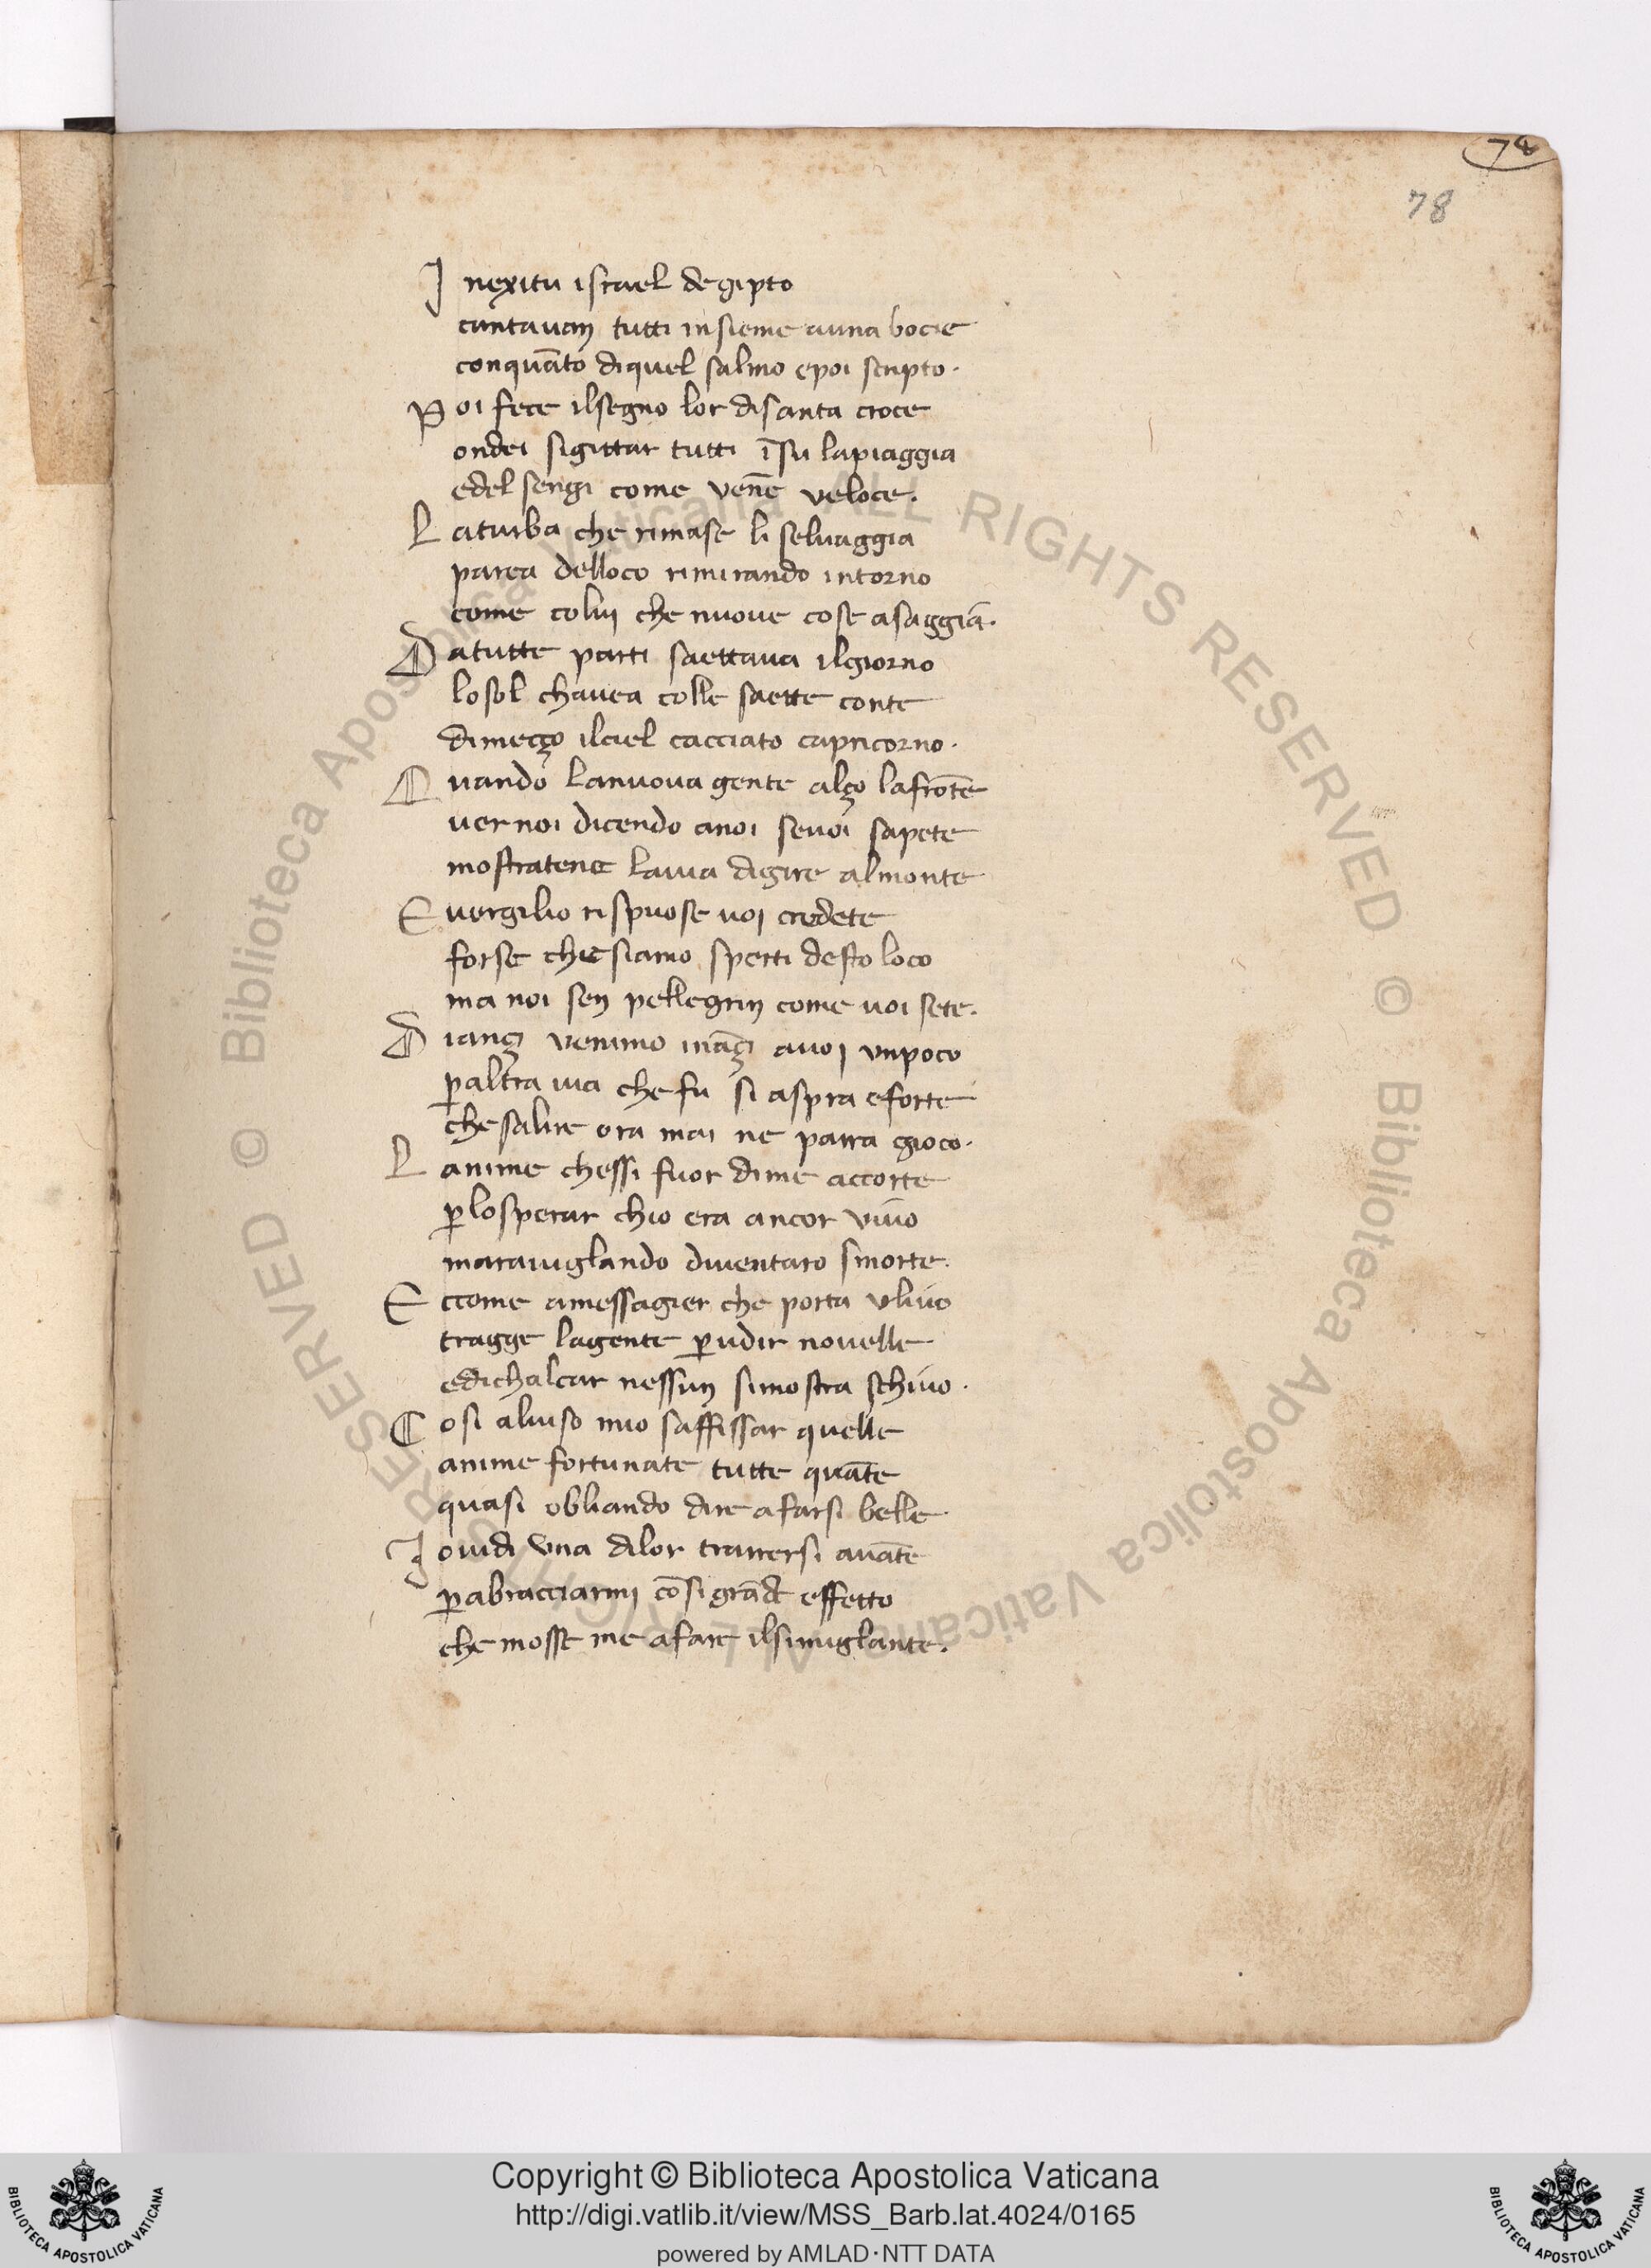 78
78
I nexitu israel degipto
cantauan tutti insieme auna bocie
conquāto diquel salmo epoi scripto.
P oi fece ilsegno lor disanta croce
ondei sigittar tutti īsu lapiaggia
edel sengi come venēe veloce.
L aturba che rimase li seluaggia
parea delloco rimirando intorno
come colui che nuoue cose asaggiā.
D atutte parti saettaua ilgiorno
losol chauea colle saette conte
dimeçço ilciel cacciato capricorno.
Q uando lanuoua gente alço lafrōte
uer noi dicendo anoi seuoi sapete
mostratene lauia digire almonte
E uergilio rispuose uoi credete
forse che siamo sperti desto loco
ma noi sen pellegrin come uoi sete.
D iançi venimoināçi auoi vnpoco
ꝑaltra uia che fu si aspra eforte
che salire ora mai ne parra gioco.
L anime chessi fuor dime accorte
ꝑlosperar chio era ancor viuo
marauiglando diuentaro smorte.
E ccome amessagier che porta vliuo
tragge lagente ꝑudir nouelle
edichalcar nessun simostra schiuo.
C osi aluiso mio saffissar quelle
anime fortunate tutte quāte
quasi obliando dire afarsi belle
I ouidi vna dilor trarrersi auāte
ꝑabracciarmi cōsi grāde effetto
che mosse me afare ilsimiglante.
© Biblioteca Apostolica Vaticana ALL RIGHTS RESERVED © Biblioteca Apostolica Vaticana ALL RIGHTS RESERVED
BIBLIOTECA APOSTOLICA VATICANA
Copyright © Biblioteca Apostolica Vaticana
http://digi.vatlib.it/view/MSS_Barb.lat.4024/0165
powered by AMLAD·NTT DATA
BIBLIOTECA APOSTOLICA VATICANA